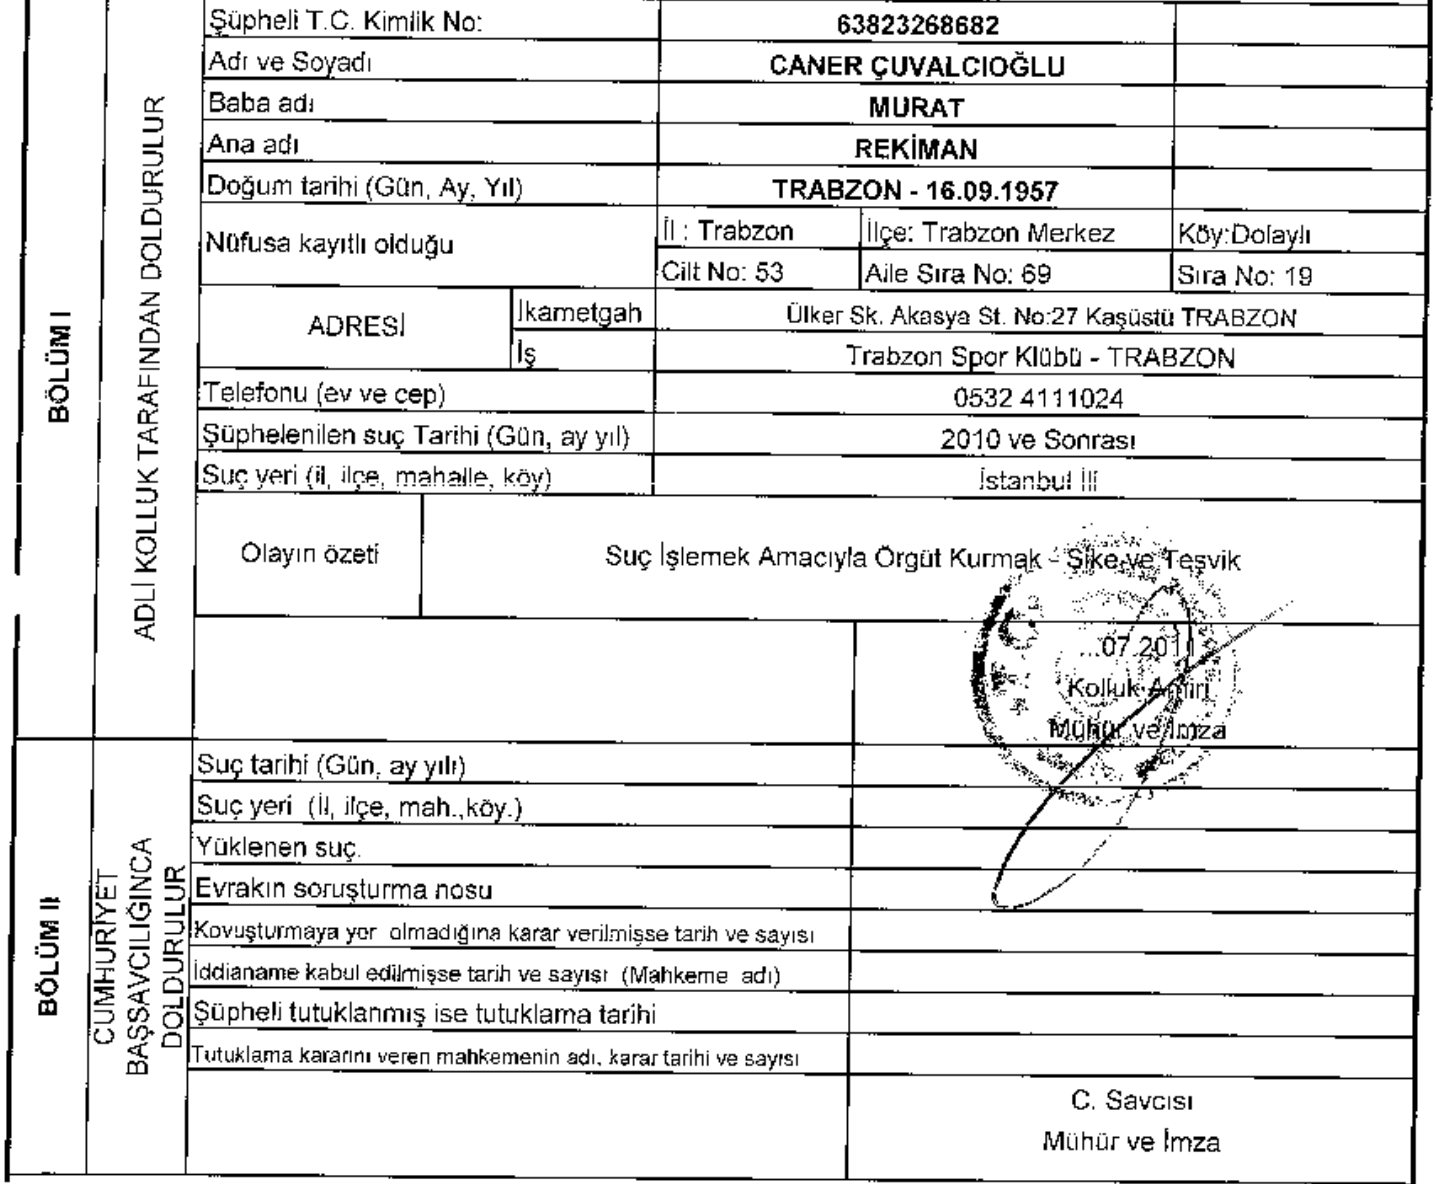 Şüpheli T.C. Kimlik No: 63823268682
Adı ve Soyadı CANER ÇUVALCIOĞLU
Baba adı MURAT
Ana adı REKİMAN
Doğum tarihi (Gün, Ay, Yıl) TRABZON - 16.09.1957
Nüfusa kayıtlı olduğu
İl : Trabzon İlçe: Trabzon Merkez Köy:Dolaylı
Cilt No: 53 Aile Sıra No: 69 Sıra No: 19
ADRESİ
İkametgah Ülker Sk. Akasya St. No:27 Kaşüstü TRABZON
İş Trabzon Spor Klübü - TRABZON
Telefonu (ev ve cep) 0532 4111024
Şüphelenilen suç Tarihi (Gün, ay yıl) 2010 ve Sonrası
Suç yeri (il, ilçe, mahalle, köy) İstanbul İli
Olayın özeti Suç İşlemek Amacıyla Örgüt Kurmak - Şike ve Teşvik
...07.2011
Kolluk Amiri
Mühür ve İmza
BÖLÜM I
ADLİ KOLLUK TARAFINDAN DOLDURULUR
Suç tarihi (Gün, ay yılı)
Suç yeri (İl, ilçe, mah.,köy.)
Yüklenen suç.
Evrakın soruşturma nosu
Kovuşturmaya yer olmadığına karar verilmişse tarih ve sayısı
İddianame kabul edilmişse tarih ve sayısı (Mahkeme adı)
Şüpheli tutuklanmış ise tutuklama tarihi
Tutuklama kararını veren mahkemenin adı, karar tarihi ve sayısı
C. Savcısı
Mühür ve İmza
BÖLÜM II
CUMHURİYET
BAŞSAVCILIĞINCA
DOLDURULUR